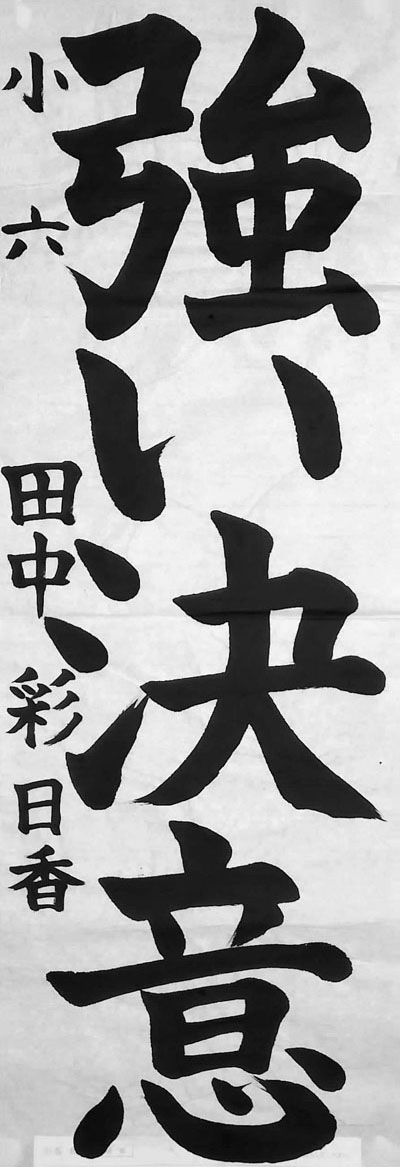 強い決意
小六 田中彩日香